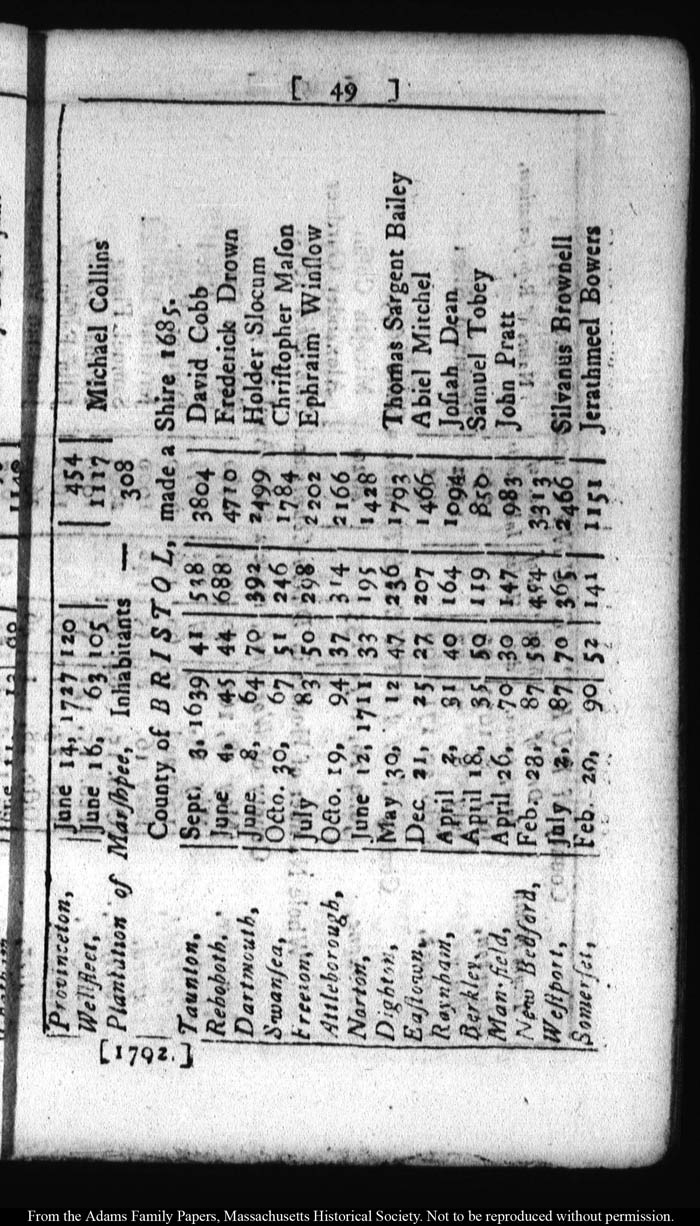 [ 49 ]
Provinceton, June 14, 1727 120 454
Wellfleet, June 16, 63 105 1117 Michael Collins
Plantation of Marſhpee, Inhabitants — 308
County of BRISTOL, made a Shire 1685.
Taunton, Sept. 3, 1639 41 538 3804 David Cobb
Rehoboth, June 4, 45 44 688 4710 Frederick Drown
Dartmouth, June 8, 64 70 392 2499 Holder Slocum
Swanſea, Octo. 30, 67 51 246 1784 Chriſtopher Maſon
Freeton, July 83 50 298 2202 Ephraim Winſlow
Attleborough, Octo. 19, 94 37 314 2166
Norton, June 12, 1711 33 195 1428
Dighton, May 30, 12 47 236 1793 Thomas Sargent Bailey
Eaſtown, Dec. 21, 25 27 207 1466 Abiel Mitchel
Raynham, April 2, 31 40 164 1094 Joſiah Dean
Berkley, April 18, 35 50 119 850 Samuel Tobey
Mansfield, April 26, 70 30 147 983 John Pratt
New Bedford, Feb. 28, 87 58 3313
Weſtport, July 2, 87 70 2466 Silvanus Brownell
Somerſet, Feb. 20, 90 52 141 1151 Jerathmeel Bowers
[1792.]
From the Adams Family Papers, Massachusetts Historical Society. Not to be reproduced without permission.